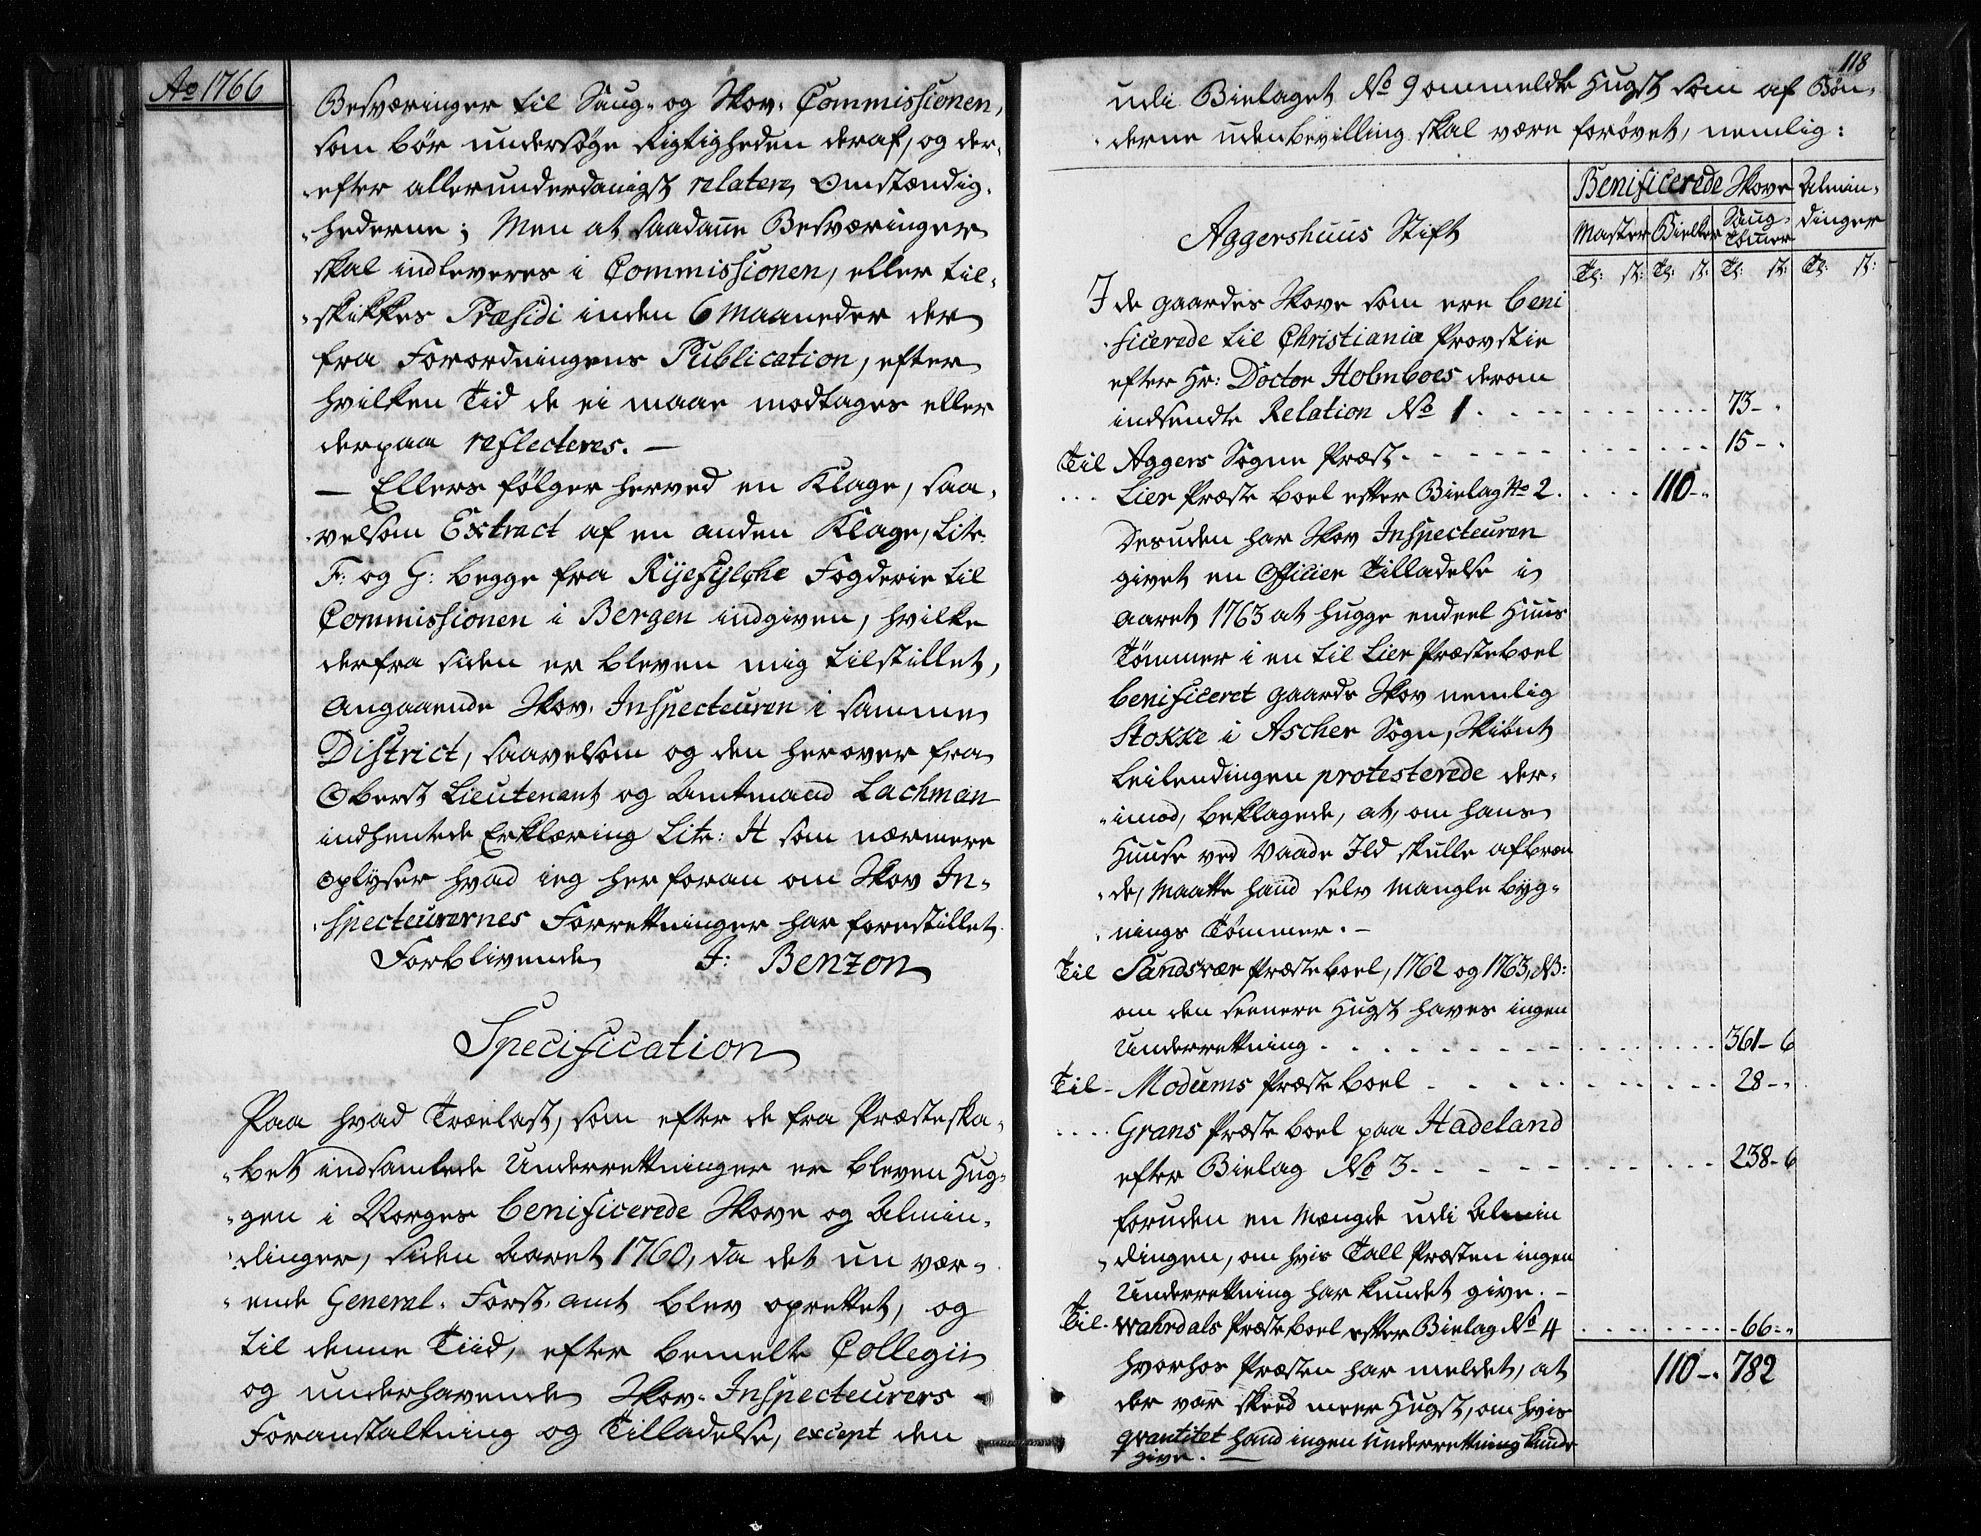 Ao 1766
Besværinger til Saug- og Skov-Commissionen,
som bør undersøge Rigtigheden deraf, og der-
-efter allerunderdanigst relatere Omstændig-
-hederne; Men at saadanne Besværinger
skal indleveres i Commissionen, eller til-
-skikkes Præsidi inden 6 Maaneder der
fra Forordningens Publication, efter
hvilken Tid de ei maae modtages eller
derpaa reflecteres. —
— Ellers følger herved en Klage, saa-
-velsom Extract af en anden Klage, Litr:
F: og G: begge fra Ryefylche Fogderie til
Commissionen i Bergen indgiven, hvilke
derfra siden er bleven mig tilstillet,
Angaaende Skov-Inspecteuren i samme
District, saavelsom og den herover fra
Oberst Lieutenant og Amtmand Lachman
indhentede Erklæring Litr: H som nærmere
oplyser hvad ieg her foran om Skov In-
-specteurernes Forrettninger har forestillet.
Forblivende J: Benzon
Specification
Paa hvad Trælast, som efter de fra Præsteska-
-bet indsamlede Underrettninger er bleven Hug-
-gen i Norges benificerede Skove og Almin-
-dinger, siden Aaret 1760, da det nu vær-
-ende General-Forst-amt blev oprettet, og
til denne Tiid, efter bemelte Collegii
og underhavende Skov-Inspecteurers
Foranstaltning og Tilladelse, except den
118
udi Bielaget No 9 ommeldte Hugst som af Bøn-
-derne uden bevilling skal være forøvet, nemlig:
Benificerede Skove Almin-
dinger
Master Bielker Saug-Tömer
Aggershuus Stift
Tl: st: Tl: st: Tl: st: Tl: st:
I de Gaardes Skove som ere beni
ficerede til Christiania Provstie
efter Hr: Doctor Holmboes derom
indsendte Relation No 1 . . . 73 - "
Til Aggers Sogne Præst . . . 15 - "
. . . Lier Præste boel efter Bielag No 2 . . . 110 - "
Desuden har Skov Inspecteuren
givet en Officier Tilladelse i
Aaret 1763 at hugge endeel Huus
Tømmer i en til Lier Præsteboel
benificeret Gaards Skov nemlig
Stokke i Ascher Sogn, Skiønt
Leilendingen protesterede der-
-imod, beklagede, at, om hans
Huuse ved Vaade Ild skulle afbræn
-de, maatte hand selv mangle byg-
-nings Tømmer. —
Til Sandsvær Præsteboel, 1762 og 1763, NB:
om den seenere Hugst haves ingen
Underrettning . . . 361 - 6
Til - Modums Præste boel . . . 28 - "
. . . Grans Præste boel paa Hadeland
efter Bielag No 3 . . . 238 - 6
foruden en Mængde udi Almin
-dingen, om hvis Tall Præsten ingen
Underrettning har kundet give. —
Til - Wahrdals Præsteboel efter Bielag No 4 . . . 66 : "
hvorhos Præsten har meldet, at 110 - " 782
der var skeed meer Hugst, om hvis
qvantitet hand ingen Underrettning kunde
give. —